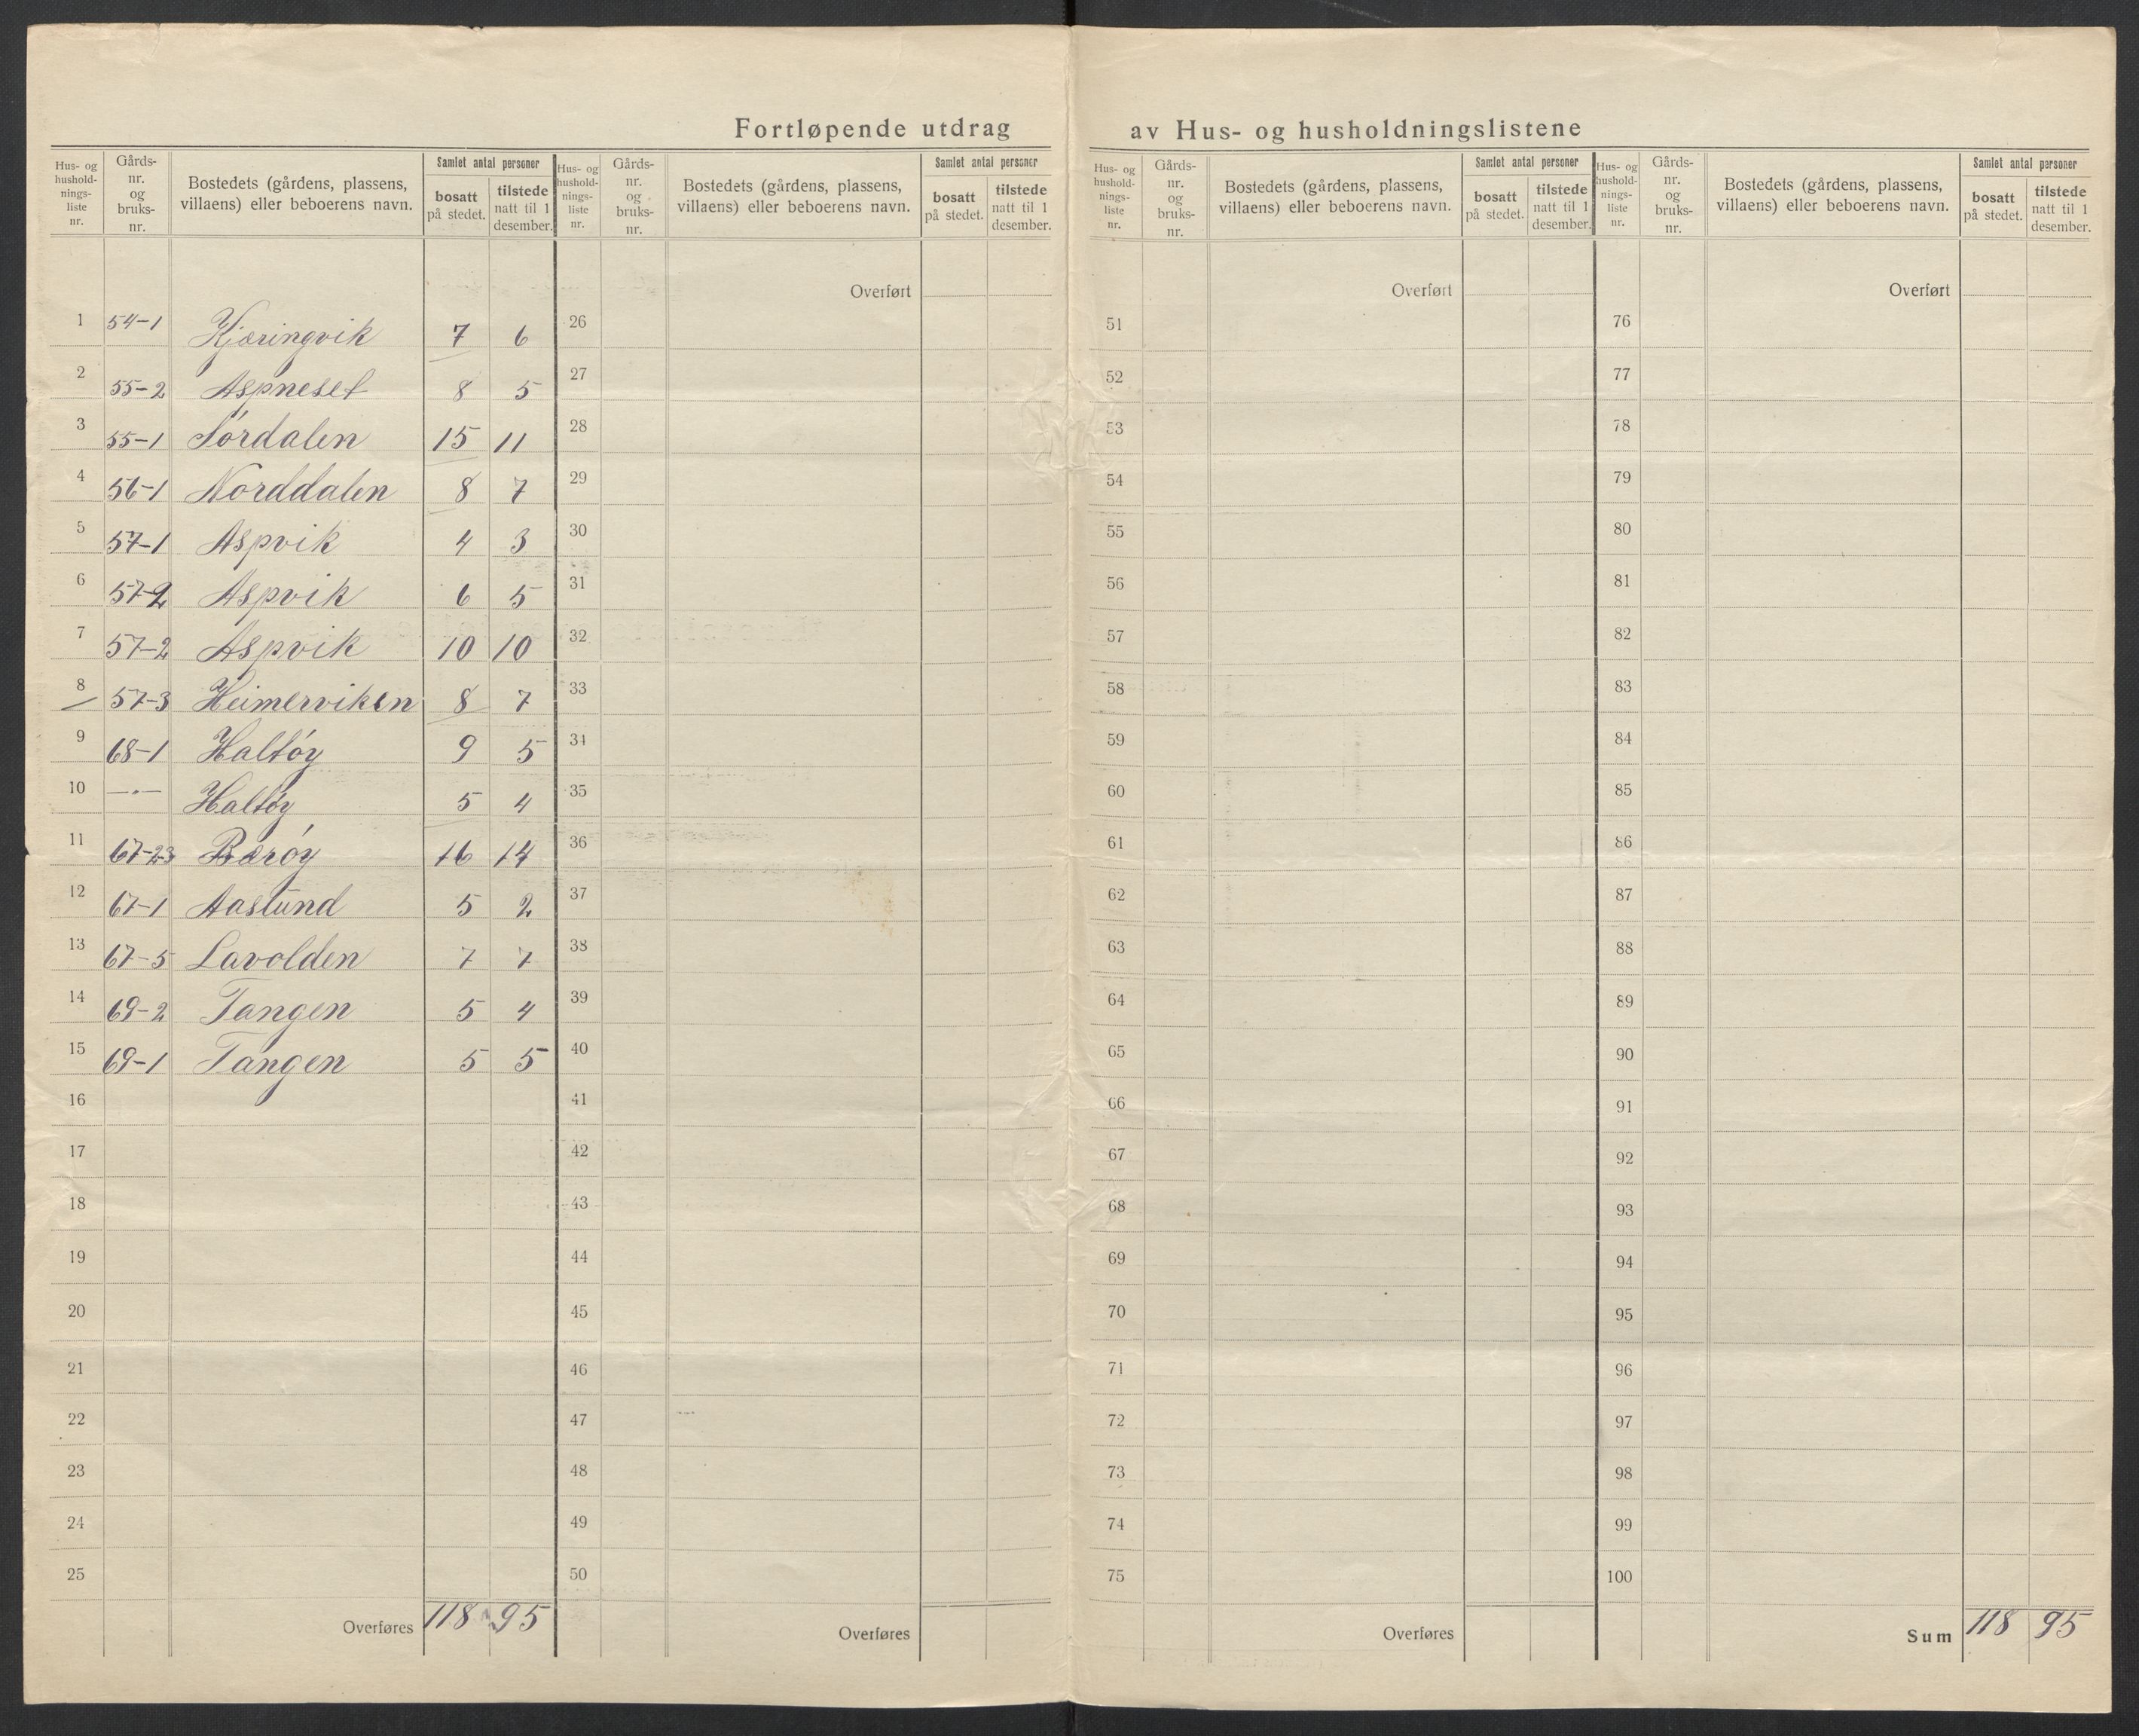 Fortløpende utdrag av Hus- og husholdningslistene
Hus- og hushold-nings-liste nr. Gårds-nr. og bruks-nr. Bostedets (gårdens, plassens, villaens) eller beboerens navn. Samlet antal personer bosatt på stedet. tilstede natt til 1 desember.
1 54-1 Kjæringvik 7 6
2 55-2 Aspneset 8 5
3 55-1 Sørdalen 15 11
4 56-1 Norddalen 8 7
5 57-1 Aspvik 4 3
6 57-2 Aspvik 6 5
7 57-2 Aspvik 10 10
8 57-3 Heimerviken 8 7
9 68-1 Haltøy 9 5
10 —•— Haltøy 5 4
11 67-23 Barøy 16 14
12 67-1 Aaslund 5 2
13 67-5 Lavolden 7 7
14 69-2 Tangen 5 4
15 69-1 Tangen 5 5
16
17
18
19
20
21
22
23
24
25
Overføres 118 95
Hus- og hushold-nings-liste nr. Gårds-nr. og bruks-nr. Bostedets (gårdens, plassens, villaens) eller beboerens navn. Samlet antal personer bosatt på stedet. tilstede natt til 1 desember.
Overført
26
27
28
29
30
31
32
33
34
35
36
37
38
39
40
41
42
43
44
45
46
47
48
49
50
Overføres
Hus- og hushold-nings-liste nr. Gårds-nr. og bruks-nr. Bostedets (gårdens, plassens, villaens) eller beboerens navn. Samlet antal personer bosatt på stedet. tilstede natt til 1 desember.
Overført
51
52
53
54
55
56
57
58
59
60
61
62
63
64
65
66
67
68
69
70
71
72
73
74
75
Overføres
Hus- og hushold-nings-liste nr. Gårds-nr. og bruks-nr. Bostedets (gårdens, plassens, villaens) eller beboerens navn. Samlet antal personer bosatt på stedet. tilstede natt til 1 desember.
Overført
76
77
78
79
80
81
82
83
84
85
86
87
88
89
90
91
92
93
94
95
96
97
98
99
100
Sum 118 95